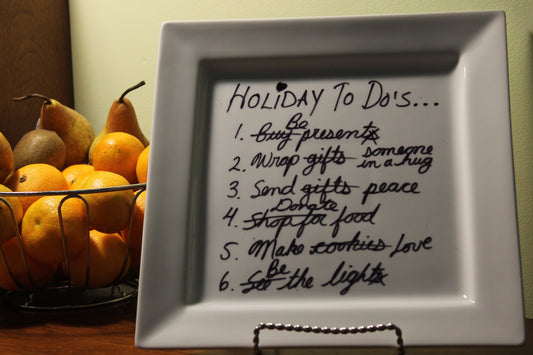 Holiday To Do's...
Be
1. Buy presents
2. Wrap gifts someone in a hug
3. Send gifts peace
Donate
4. Shop for food
5. Make cookies Love
Be
6. See the lights